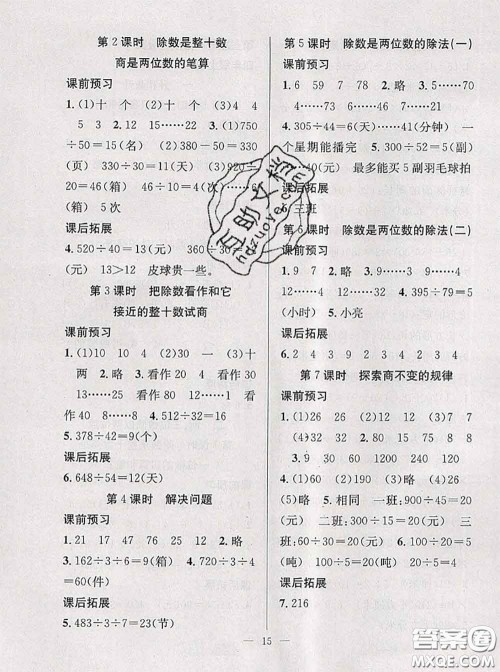 第2课时 除数是整十数
商是两位数的笔算
课前预习
1.(1)十 个 (2)十 个 (3)4 4
5 3 2.12 15……22 3.(1)750
÷50=15(名) (2)330÷11=
30(页) 330÷30=11(天) (3)920÷
20=46(箱) 46÷10=4(次)……6
(箱) 5次
课后拓展
4.520÷40=13(元)
(元) 13>12 皮球贵一些。
第3课时 把除数看作和它
接近的整十数试商
课前预习
1.(1)82 10 4 (2)30 一 (3)十
两 2.略 3.看作20 14 看作
30 12……25 看作80 12……1
看作30 21……8 4.512÷32=16
5.378÷42=9(个)
课后拓展
6.648÷54=12(天)
第4课时 解决问题
课前预习
1.21 17 47 76 25 12 2.略
3.162÷3÷6=9(箱) 4.720÷3÷4
=60(件)
课后拓展
5.483÷3÷7=23(节)
第5课时 除数是两位数的除法(一)
课前预习
1.6 59 7 78 2.略 3.5……40
5……73 4……22 6……23 6……46
70……6 4.305÷44=6……41(分钟) 一
个星期能播完 5.300÷55=5(副)
……40(元) 最多能买5副羽毛球拍
课后拓展
三班
第6课时 除数是两位数的除法(二)
课前预习
1.9 7 2.略 3.略 4.395÷79=5
(小时) 5.小亮
课后拓展
6.2 4 3 9 1 2 3 4 2 3 4
第7课时 探索商不变的规律
课前预习
1.(1)26 26 (2)12 12 (3)7 7
(4)32 32 2.80 80 80 8 8
8 3.9 90 1200 60 100
4.(1)200 (2)360 (3)42 (4)90
5.相同 一班:200÷10=20
(元) 二班:400÷20=20(元) 三
班:60÷30=20(元) 6.1000÷20=50
(吨) 100÷5=20(吨) 20<50
课后拓展
7.216
15
互助文档
hdzuoye.com
答案圈
MXQE.COM